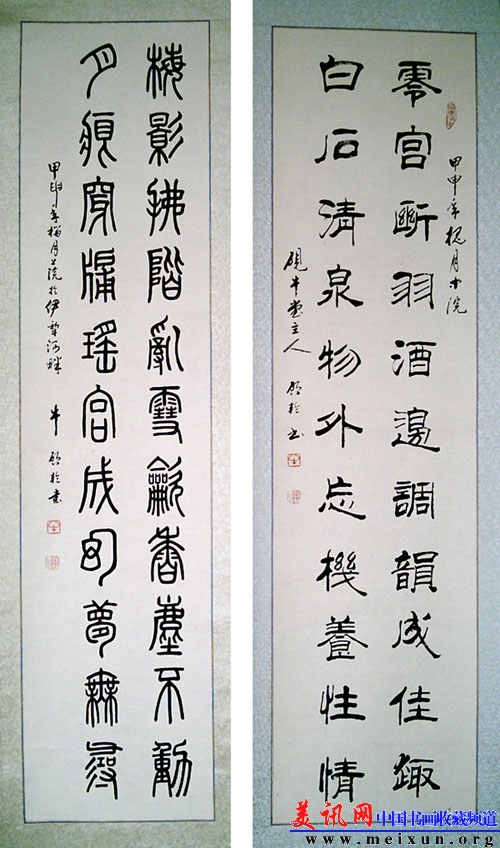 甲申年月浣
零宫斷羽酒邊調韻成佳趣
白石清泉物外忘機養性情
硯牛堂主人
梅影拂階亂雪龡香塵不動
月痕穿牖瑤宮成句夢無尋
甲申年榴月上浣於伊犁河畔 牛書
美讯网 中国书画收藏频道
www.meixun.org